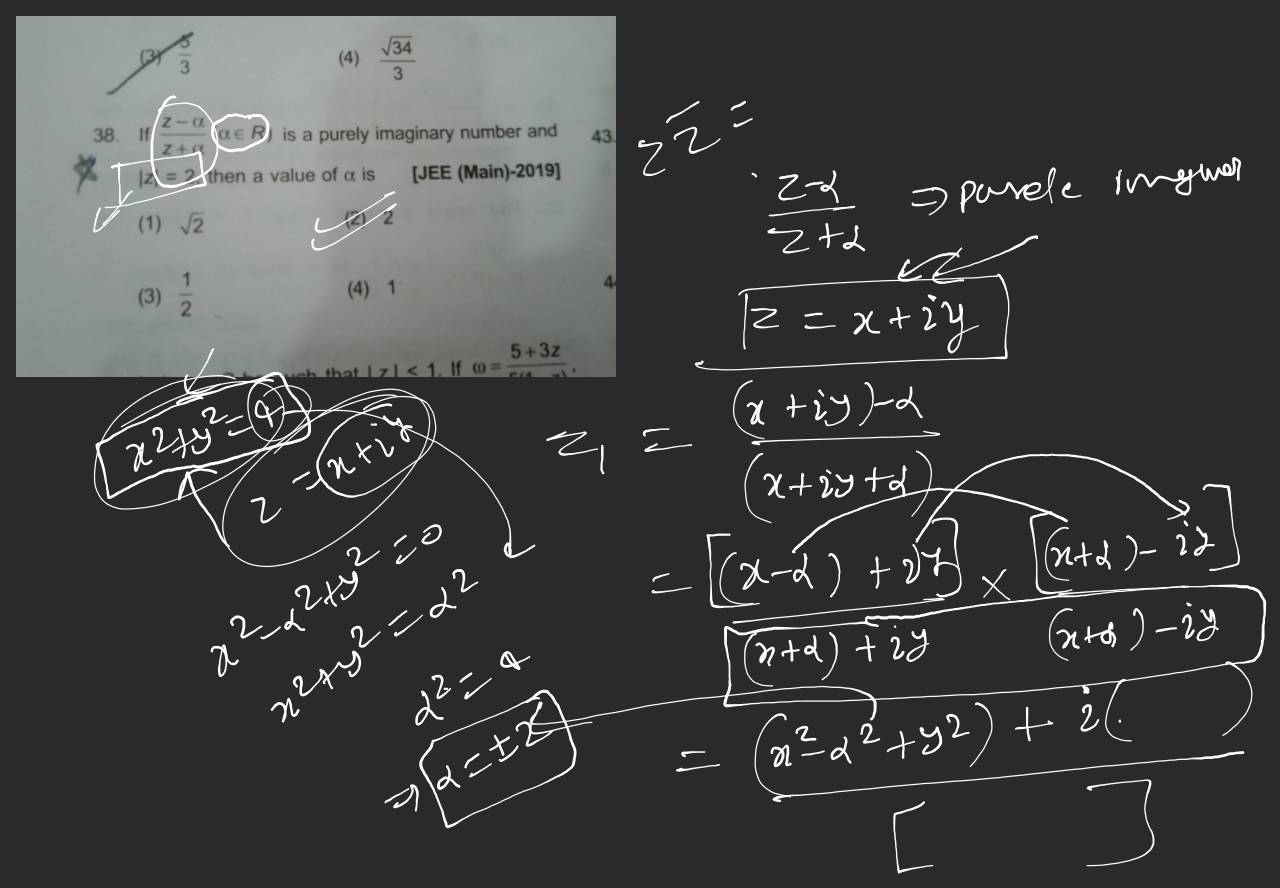 (3) 5/3
(4) √34/3
38. If (z – α)/(z + α) (α ∈ R) is a purely imaginary number and
|z| = 2, then a value of α is [JEE (Main)-2019]
(1) √2
(2) 2
(3) 1/2
(4) 1
43.
that | z | < 1. If ω = 5+3z
z z̄ =
(z-α)/(z+α) ⇒
z = x+iy
z₁ = ((x+iy)-α)/(x+iy+α)
= [(x-α)+iy]/((x+α)+iy) × [(x+α)-iy]/((x+α)-iy)
= (x²-α²+y²) + i( )
[ ]
x²+y²=4
z = x+iy
x²-α²+y²=0
x²+y²=α²
α²=4
⇒ α=±2